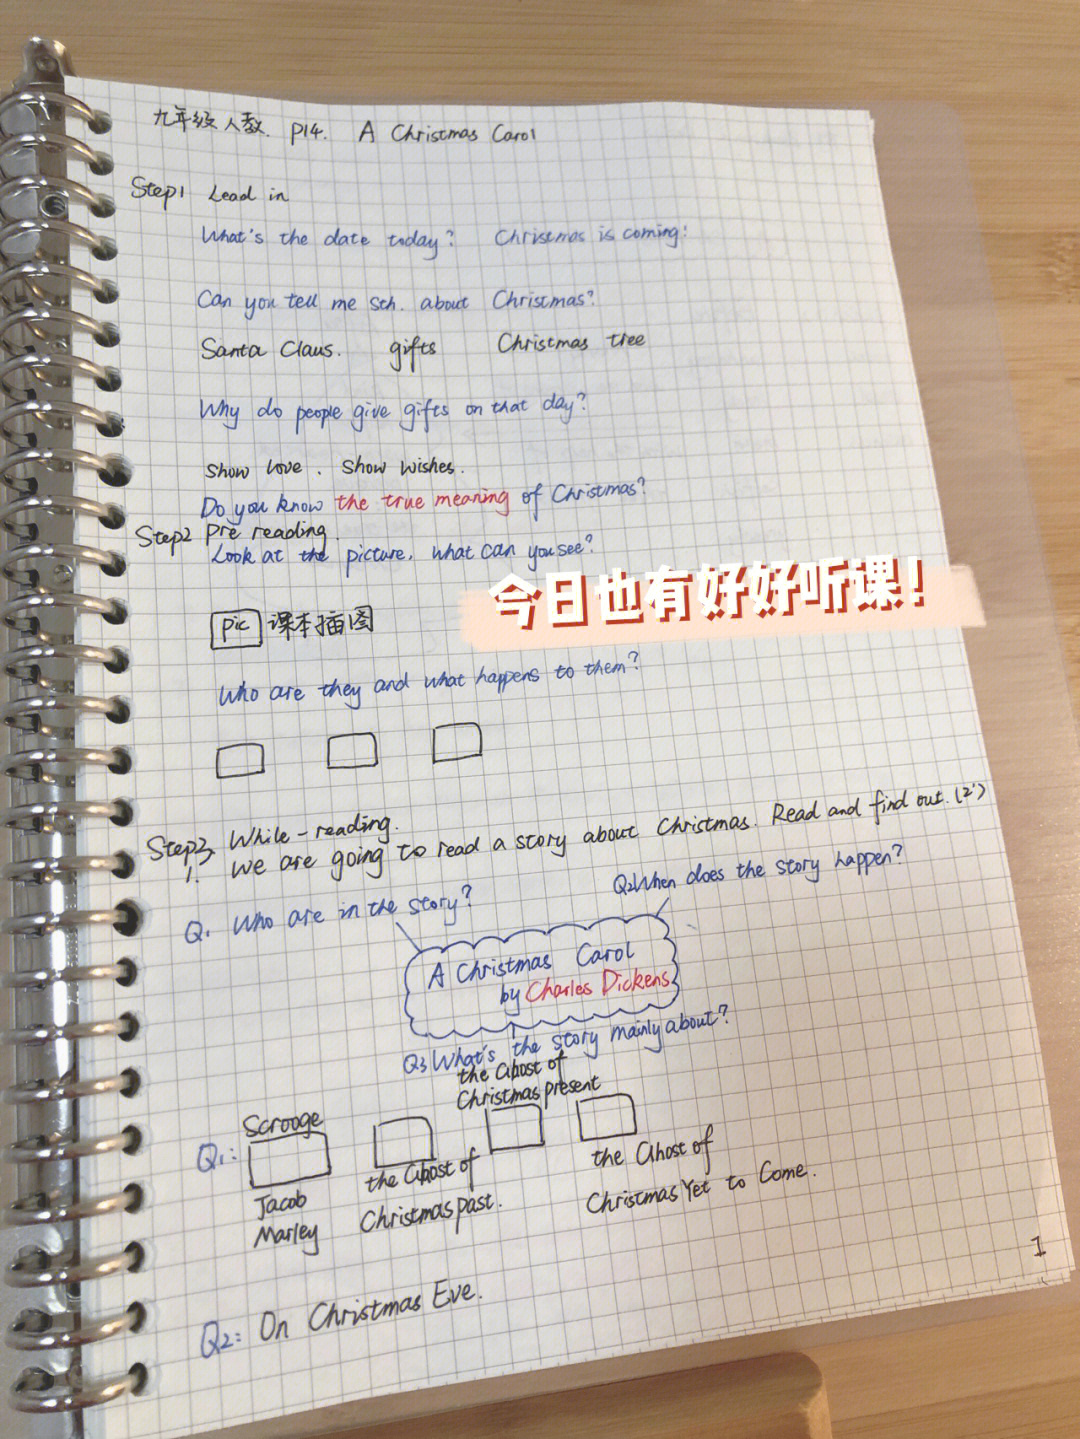 九年级人教. P14. A Christmas Carol
Step1 Lead in
What's the date today? Christmas is coming!
Can you tell me sth. about Christmas?
Santa Claus. gifts Christmas tree
Why do people give gifts on that day?
Show love. Show wishes.
Do you know the true meaning of Christmas?
Step2 Pre reading.
Look at the picture, what can you see?
今日也有好好听课!
pic 课本插图
Who are they and what happens to them?
Step3 While-reading.
1. We are going to read a story about Christmas. Read and find out. (2')
Q1 Who are in the story? Q2 When does the story happen?
A Christmas Carol
by Charles Dickens
Q3 What's the story mainly about?
Q1: Scrooge
Jacob
Marley
the Ghost of
Christmas past.
the Ghost of
Christmas present
the Ghost of
Christmas Yet to Come.
Q2: On Christmas Eve.
1